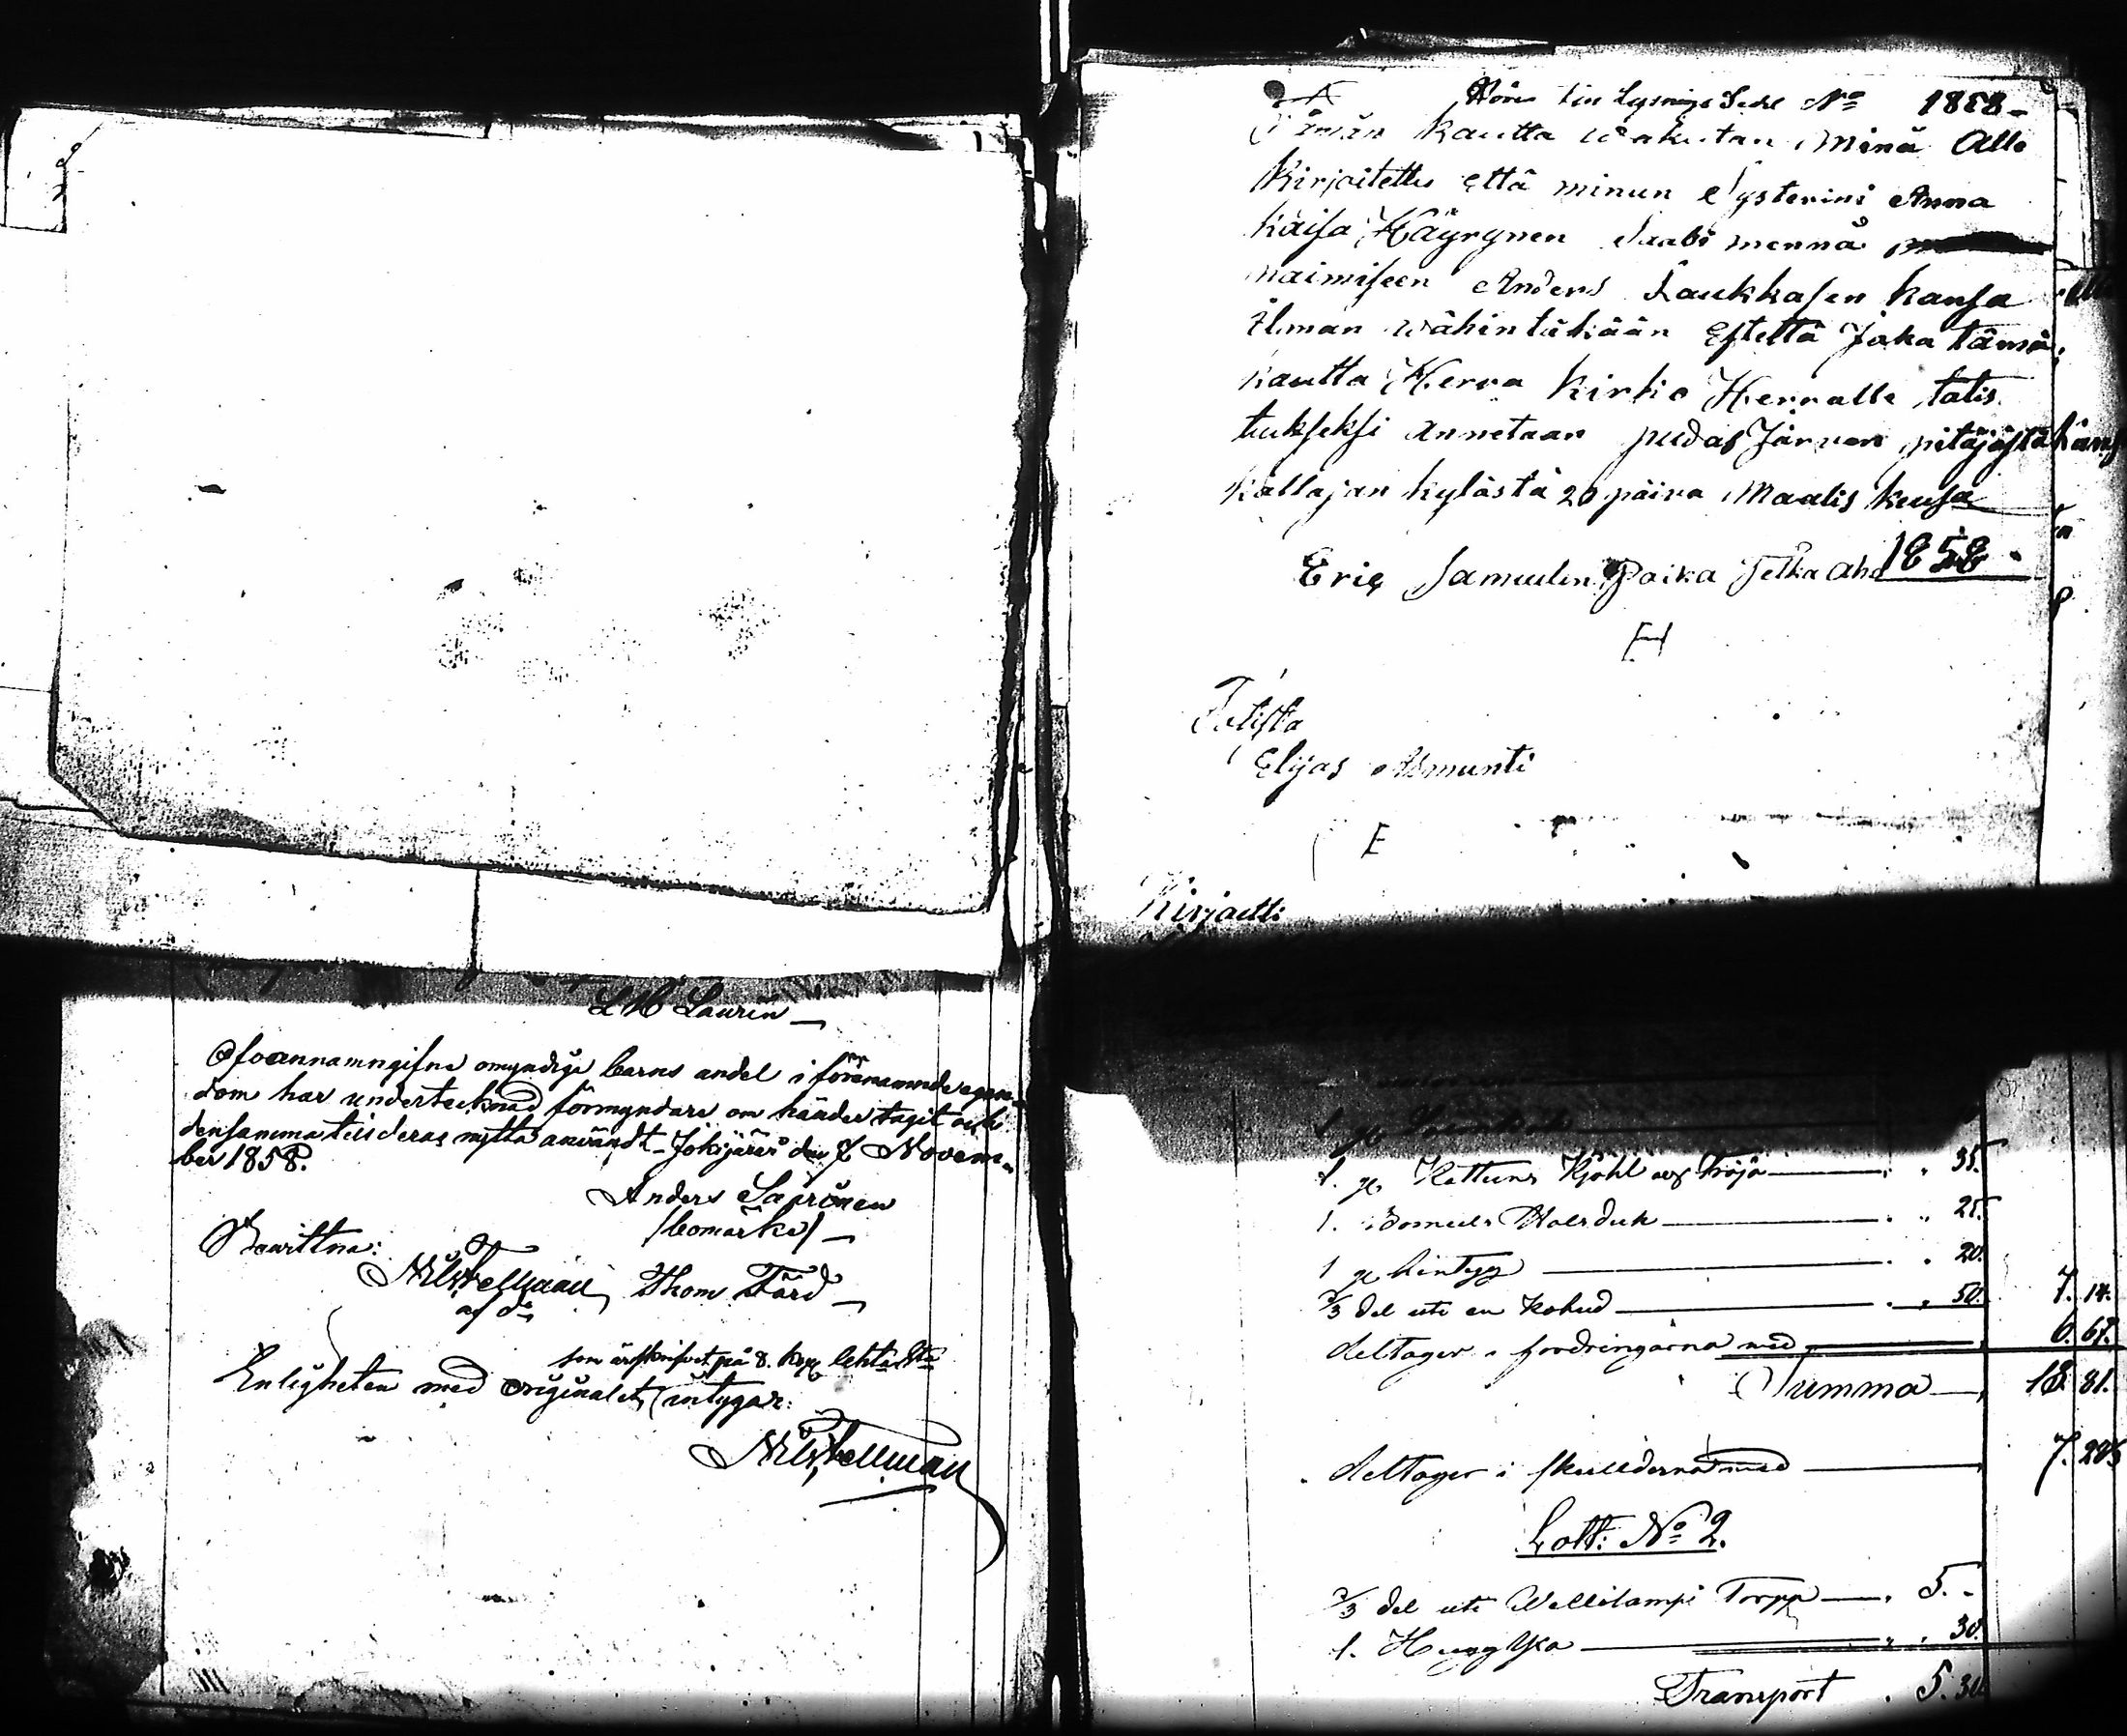 Hörer till Lysnings Sedel No 1858 -
Tämän kautta wakutan Minä Alle
Kirjoitettu että minun Systerini Anna
Kaisa Häyrynen Saabi mennä
naimiseen Anders Laukkasen kansa
ilman wähintäkään Estettä Joka tämän
kautta Herra Kirko Herralle totis
tukseksi annetaan pudas Järven pitäjästä
Kollajan kylästä 20 päiva Maalis kuusa
1858.
Eric Samulin Poika Jelka aho
Totista
Elijas Asmunti
Kirjoitti
L M Laurin
Ofvannämngifne omyndige barns andel i förenämnde egen-
dom har undertecknad förmyndare om händer tagit och
densamma till deras nytta användt - Jokijärvi den 7 Novem-
ber 1858.
Anders Säprönen
(bomärke) -
Bewittna:
Nils Fellman, Thom Tärd -
af do
som är skrifvet på 8. kop. Charta Sta
Enligheten med originalet, intygar:
Nils Fellman
1. gl. Kattuns Kjohl och tröja . . 35.
1. Bomuls Halsduk . . 25.
1 gl. lintyg . . 20.
2/3 del uti en kohud . . 50. 7. 14.
deltager i fordringarna med 6. 67.
Summa 13. 81.
deltager i skullderna med 7. 20 1/3
Lott: No 2.
2/3 del uti Wellilampi Torpp . 5. -
1. Hugg Yxa . . 30.
Transport . 5. 30